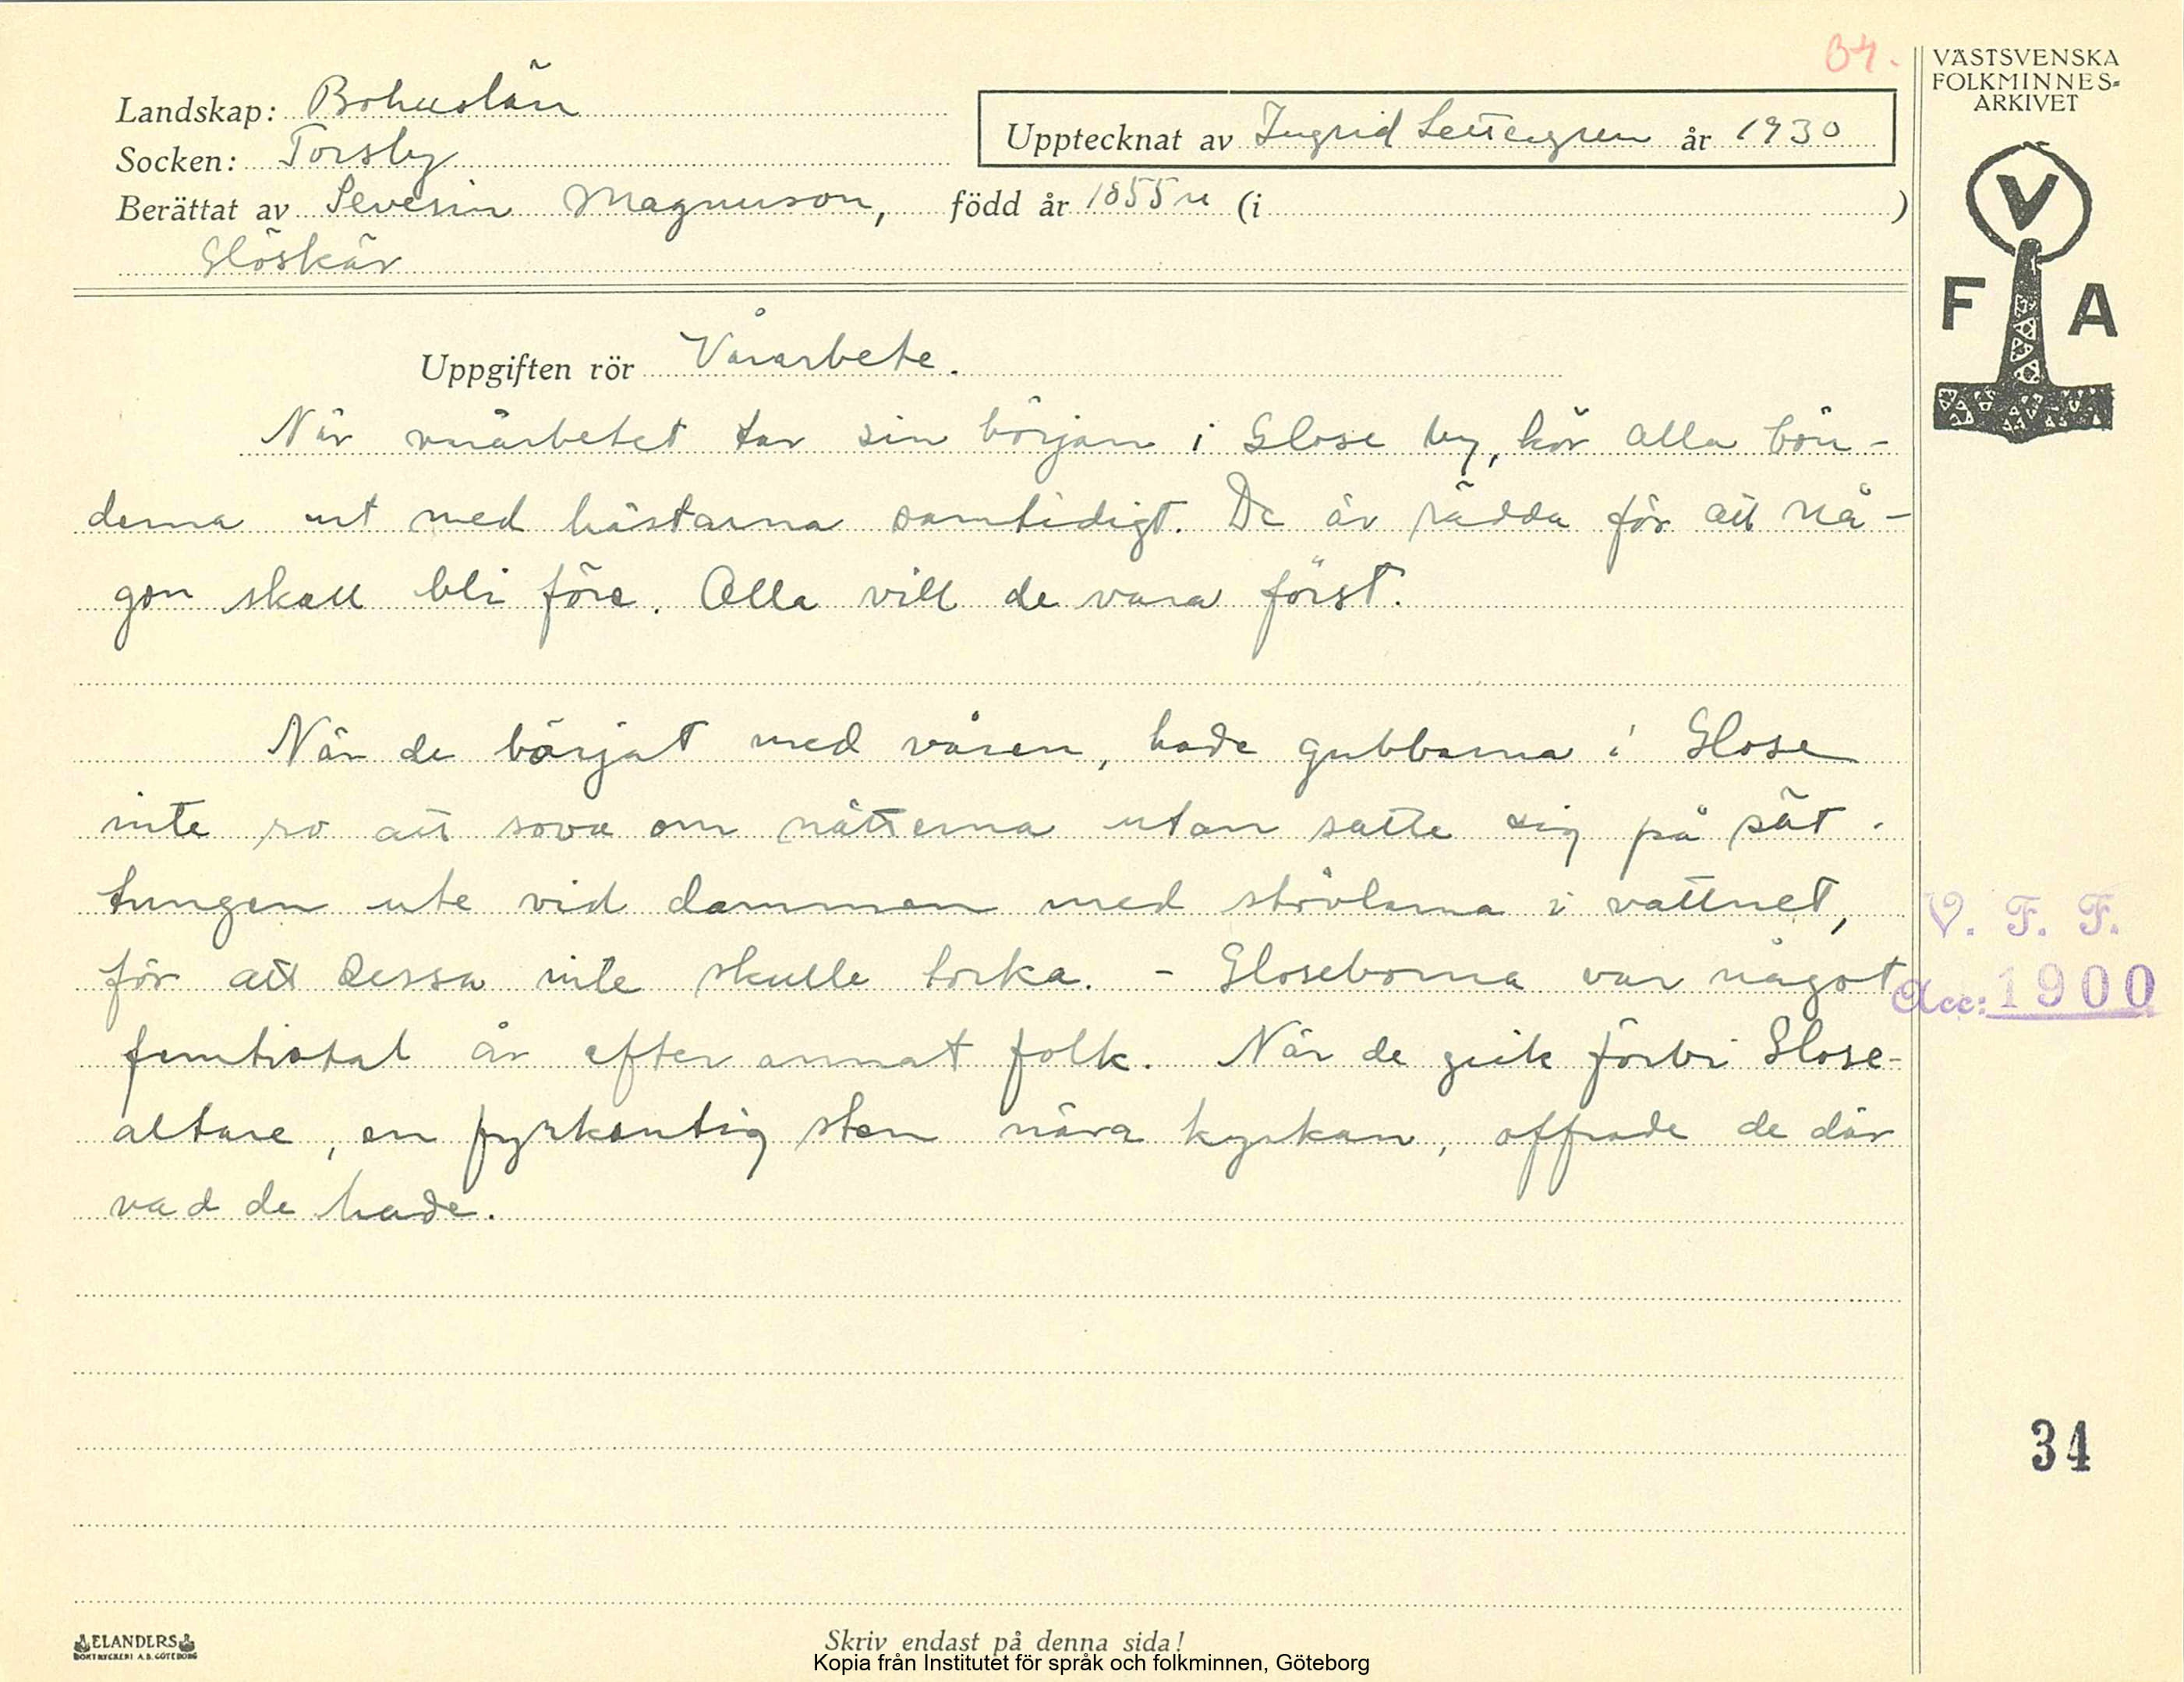 34.
VÄSTSVENSKA
FOLKMINNES-
ARKIVET
V
F A
Landskap: Bohuslän
Socken: Torsby
Upptecknat av Ingrid år 1930
Berättat av Severin Magnuson, född år 1855 (i )
Glöskär
Uppgiften rör Vårarbete.
När vårarbetet tar sin början i Glose by, kör alla bön-
derna ut med hästarna samtidigt. De är rädda för att nå-
gon skall bli före. Alla vill de vara först.
När de börjat med våren, hade gubbarna i Glose
inte ro att sova om nätterna utan satte sig på
ute vid dammen med stövlarna i vattnet,
för att dessa inte skulle torka. - Gloseborna var något
femtiotal år efter annat folk. När de gick förbi Glose-
altare, en fyrkantig sten nära kyrkan, offrade de där
vad de hade.
V. F. F.
Acc: 1900
34
ELANDERS
BOKTRYCKERI A.B. GÖTEBORG
Skriv endast på denna sida!
Kopia från Institutet för språk och folkminnen, Göteborg